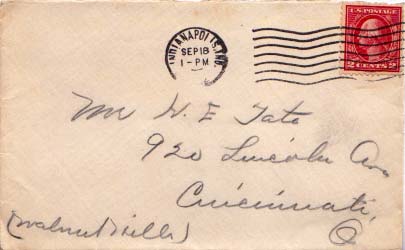 INDIANAPOLIS, IND.
SEP 18
1-PM
U.S. POSTAGE
2 CENTS 2
Mr W. E Tate
920 Lincoln Ave
Cincinnati,
O
(Walnut Hills)